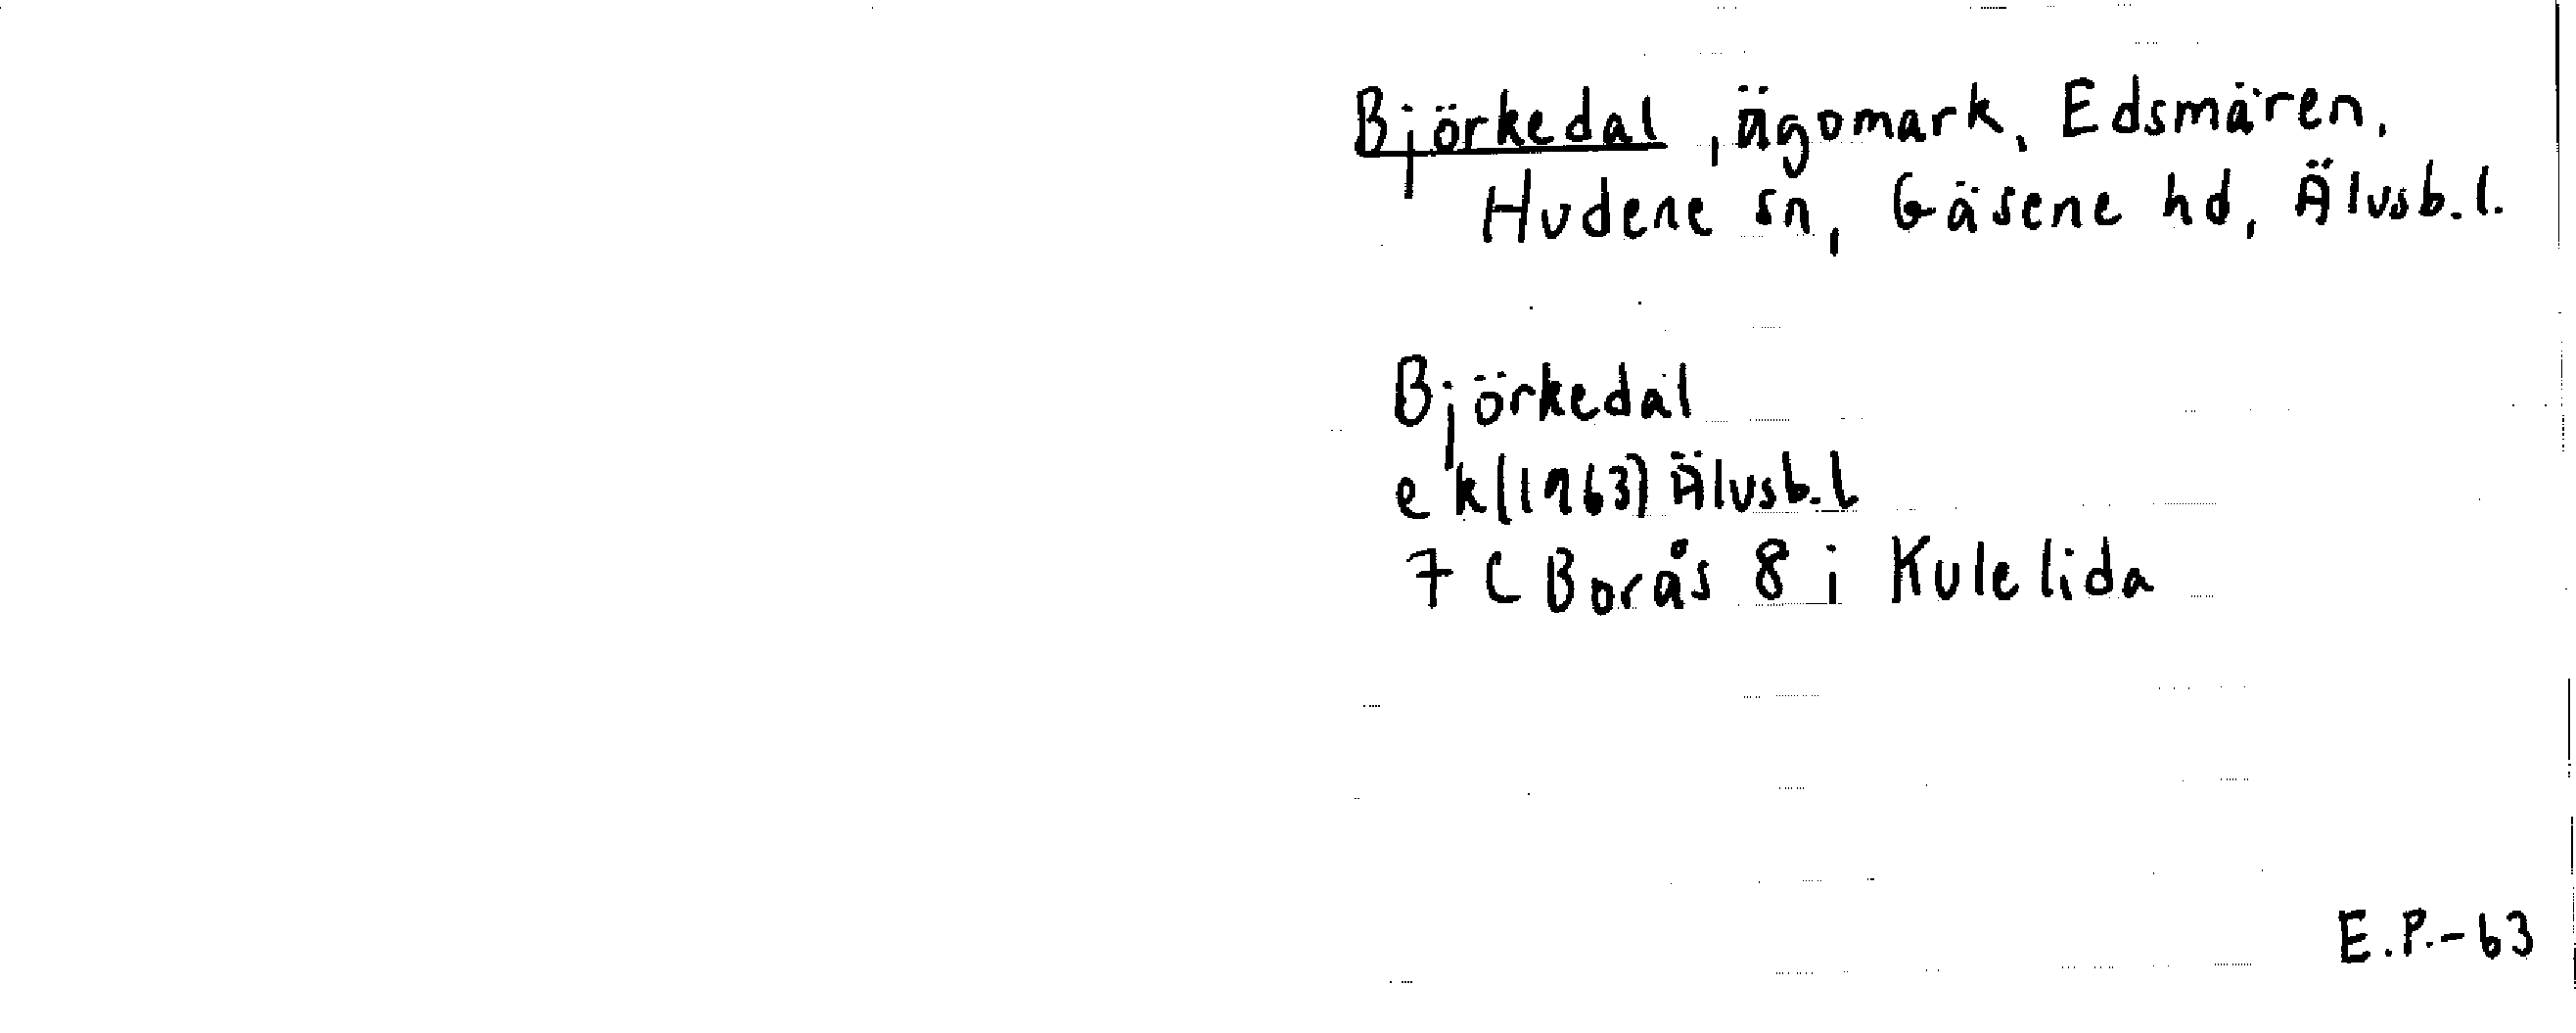 Björkedal, ägomark, Edsmären,
Hudene sn, Gäsene hd, Älvsb. l.
Björkedal
ek (1963) Älvsb. l
7 C Borås 8 i Kulelida
E.P.-63